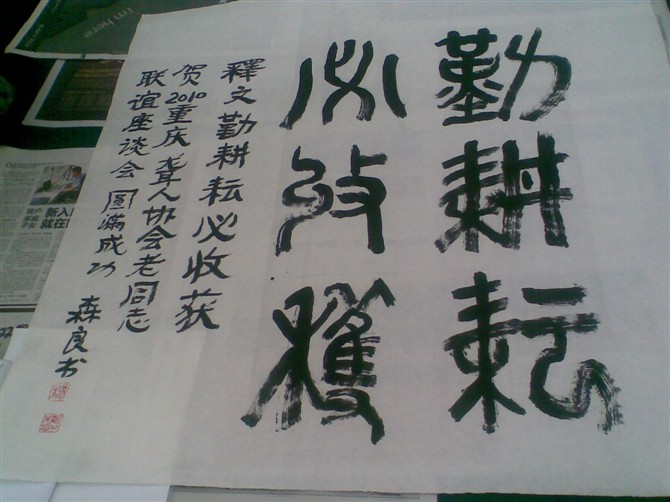 勤耕耘
必收穫
釋文勤耕耘必收获
贺2010重庆聋人协会老同志
联谊座谈会 圆满成功
森良书
I'm here
新入
就在